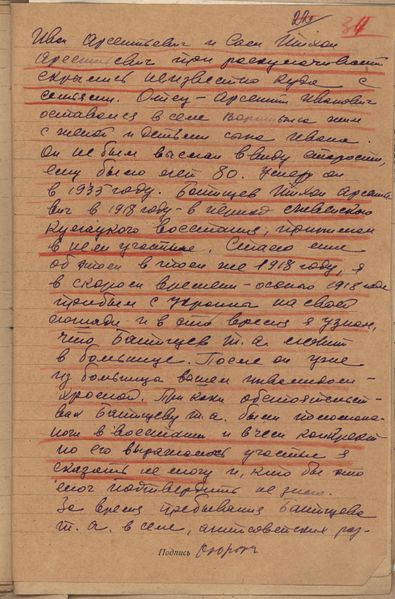 34
Иван Арсентьевич и Сын Тихон
Арсентьевич при раскулачивании
скрылись неизвестно куда с
семьями. Отец - Арсентий Иванович
остался в селе жил
с женой и детьми сына Ивана.
Он не был выслан ввиду старости,
ему было лет 80. Умер он
в 1935 году. Батищев Тихон Арсенть-
вич в 1918 году - в период
Кулацкого восстания, принимал
в нем участие. Стало мне
об этом в том же 1918 году, я
в скором времени - осенью 1918 года
прибыл с Украины на своей
лошади и в это время я узнал,
что Батищев Т. А. лежит
в больнице. После он уже
из больницы вышел инвалидом -
хромой. При каких обстоятельст-
вах Батищеву Т. А. были
ноги в восстании и в чем конкрет-
но его выражалось участие я
сказать не могу и, кто бы это
мог подтвердить не знаю.
За время пребывания Батищева
Т. А. в селе, антисоветских раз-
Подпись